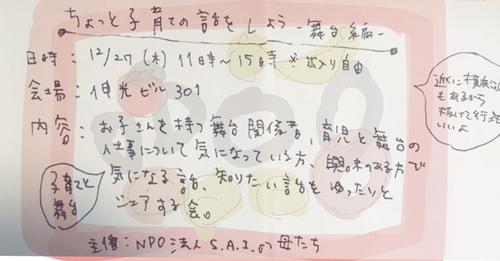 ちょっと子育ての話をしよう -舞台編-
日時：12/27(木) 11時～15時 ※出入り自由
会場：伸光ビル301
内容：お子さんを持つ舞台関係者、育児と舞台の
仕事について気になっている方、興味のある方で
気になる話、知りたい話をゆったりと
シェアする会。
子育てと
舞台
近くに
もあるから
抜けて行っても
いいよ
主催：NPO法人S.A.I.の母たち